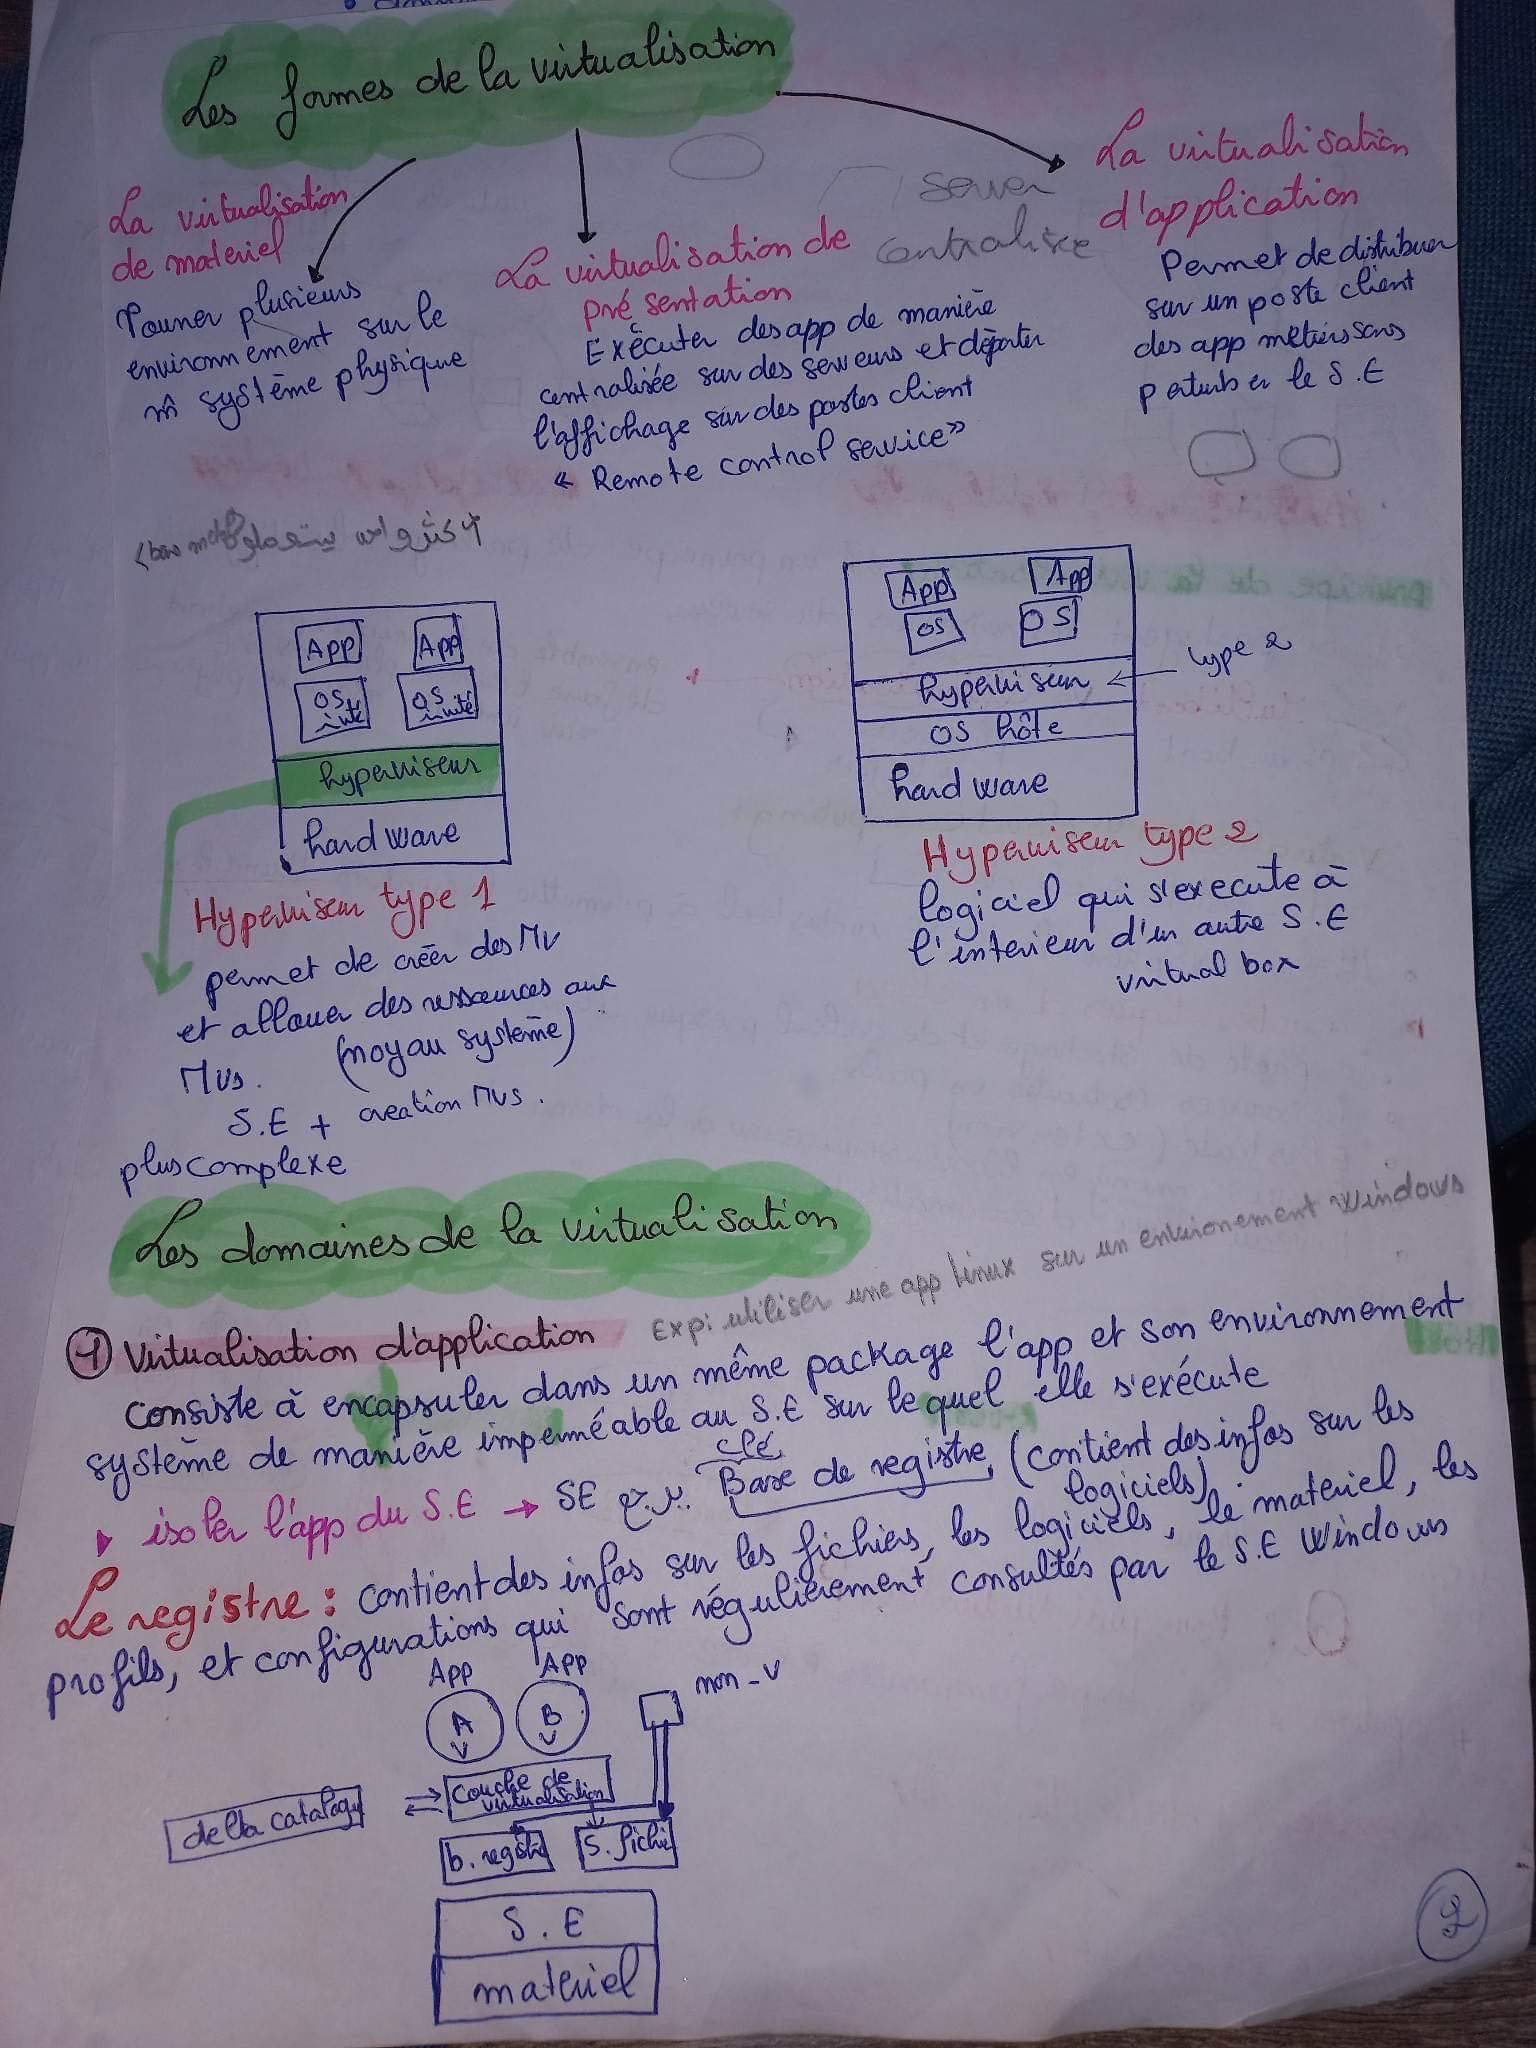 Les formes de la virtualisation
La virtualisation
de materiel
Tourner plusieurs
environnement sur le
m̂ système physique
La virtualisation de
présentation
Exécuter des app de manière
centralisée sur des serveurs et déporter
l'affichage sur des postes client
« Remote control service »
server
centralisée
La virtualisation
d'application
Permet de distribuer
sur un poste client
des app métiers sans
perturber le S.E
(bare metal) اكثر واحد يستعملوه
App App
OS invité OS invité
hyperviseur
hardware
Hyperviseur type 1
permet de créer des MV
et allouer des ressources aux
MVs. (noyau système)
S.E + creation MVs.
plus complexe
App App
OS OS
hyperviseur ← type 2
OS hôte
hardware
Hyperviseur type 2
logiciel qui s'execute à
l'interieur d'un autre S.E
virtual box
Les domaines de la virtualisation
① Virtualisation d'application Exp: utiliser une app linux sur un environement windows
consiste à encapsuler dans un même package l'app et son environnement
système de manière imperméable au S.E sur le quel elle s'exécute
▸ isoler l'app du S.E → SE Base de registre (contient des infos sur les
clé
logiciels)
Le registre : contient des infos sur les fichiers, les logiciels, le materiel, les
profils, et configurations qui sont régulièrement consultés par le S.E Windows
App App
A B non-V
V V
delta catalogy ⇄ couche de virtualisation
b. registre S. fichie
S.E
materiel
2